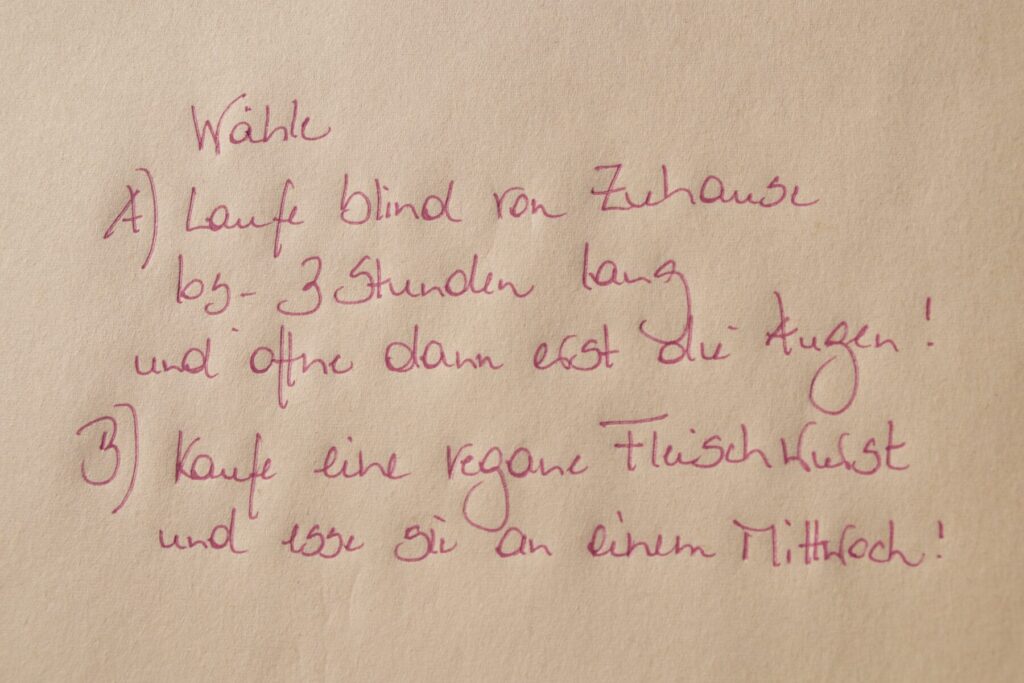 Wähle
A) Laufe blind von Zuhause
los - 3 Stunden lang
und öffne dann erst die Augen!
B) Kaufe eine vegane Fleischwurst
und esse sie an einem Mittwoch!